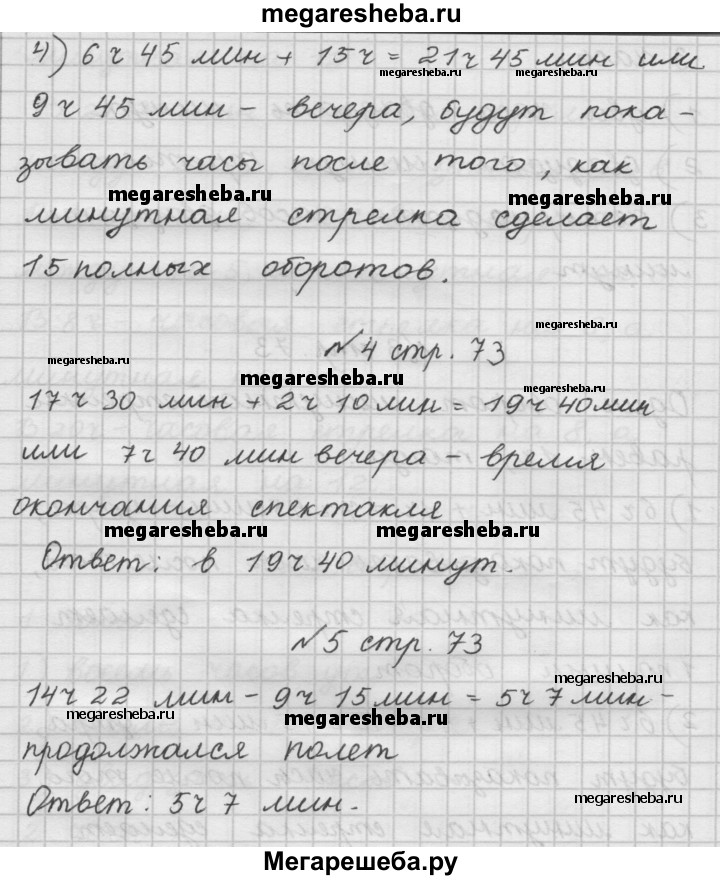 megaresheba.ru
4) 6 ч 45 мин + 15 ч = 21 ч 45 мин или
megaresheba.ru megaresheba.ru
9 ч 45 мин - вечера, будут пока -
зывать часы после того, как
megaresheba.ru megaresheba.ru
минутная стрелка сделает
15 полных оборотов.
megaresheba.ru
№4 стр. 73
megaresheba.ru
megaresheba.ru megaresheba.ru
17 ч 30 мин + 2 ч 10 мин = 19 ч 40 мин
или 7 ч 40 мин вечера - время
окончания спектакля
megaresheba.ru megaresheba.ru
Ответ: в 19 ч 40 минут.
№5 стр. 73
14 ч 22 мин - 9 ч 15 мин = 5 ч 7 мин -
megaresheba.ru megaresheba.ru megaresheba.ru
продолжался полет
Ответ: 5 ч 7 мин.
megaresheba.ru
Мегарешеба.ру